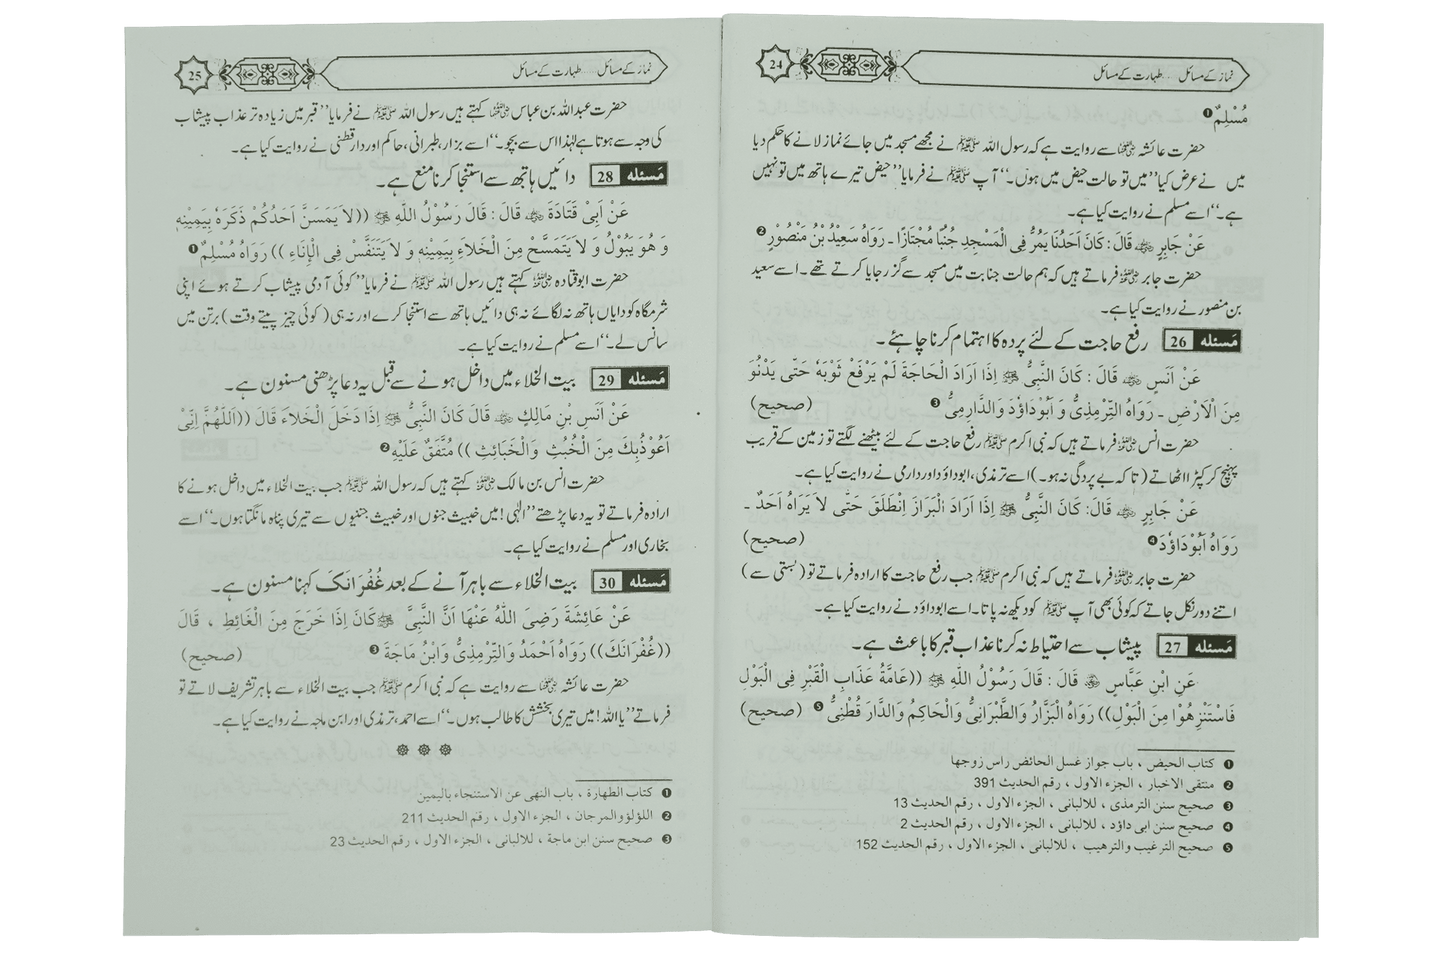 نماز کے مسائل.....طہارت کے مسائل
24
مُسْلِمٌ ❶
حضرت عائشہ رضی اللہ عنہا سے روایت ہے کہ رسول اللہ ﷺ نے مجھے مسجد میں جائے نماز لانے کا حکم دیا
میں نے عرض کیا ’’میں تو حالت حیض میں ہوں۔‘‘ آپ ﷺ نے فرمایا ’’حیض تیرے ہاتھ میں تو نہیں
ہے۔‘‘ اسے مسلم نے روایت کیا ہے۔
عَنْ جَابِرٍ ؓ قَالَ: كَانَ اَحَدُنَا يَمُرُّ فِى الْمَسْجِدِ جُنُبًا مُجْتَازًا ۔ رَوَاهُ سَعِيْدُ بْنُ مَنْصُوْرٍ ❷
حضرت جابر ؓ فرماتے ہیں کہ ہم حالت جنابت میں مسجد سے گزر جایا کرتے تھے۔ اسے سعید
بن منصور نے روایت کیا ہے۔
مَسئله 26 رفع حاجت کے لئے پردہ کا اہتمام کرنا چاہئے۔
عَنْ اَنَسٍ ؓ قَالَ : كَانَ النَّبِىُّ ﷺ اِذَا اَرَادَ الْحَاجَةَ لَمْ يَرْفَعْ ثَوْبَهٗ حَتّٰى يَدْنُوَ
مِنَ الْاَرْضِ ۔ رَوَاهُ التِّرْمِذِىُّ وَ اَبُوْدَاوٗدَ وَالدَّارِمِىُّ ❸ (صحيح)
حضرت انس ؓ فرماتے ہیں کہ نبی اکرم ﷺ رفع حاجت کے لئے بیٹھنے لگتے تو زمین کے قریب
پہنچ کر کپڑا اٹھاتے (تاکہ بے پردگی نہ ہو۔) اسے ترمذی، ابوداؤد اور دارمی نے روایت کیا ہے۔
عَنْ جَابِرٍ ؓ قَالَ: كَانَ النَّبِىُّ ﷺ اِذَا اَرَادَ الْبَرَازَ اِنْطَلَقَ حَتّٰى لاَ يَرَاهُ اَحَدٌ ۔
رَوَاهُ اَبُوْدَاوٗدَ ❹ (صحيح)
حضرت جابر ؓ فرماتے ہیں کہ نبی اکرم ﷺ جب رفع حاجت کا ارادہ فرماتے تو (بستی سے)
اتنے دور نکل جاتے کہ کوئی بھی آپ ﷺ کو دیکھ نہ پاتا۔ اسے ابوداؤد نے روایت کیا ہے۔
مَسئله 27 پیشاب سے احتیاط نہ کرنا عذاب قبر کا باعث ہے۔
عَنِ ابْنِ عَبَّاسٍ ؓ قَالَ : قَالَ رَسُوْلُ اللّٰهِ ﷺ ((عَامَّةُ عَذَابِ الْقَبْرِ فِى الْبَوْلِ
فَاسْتَنْزِهُوْا مِنَ الْبَوْلِ)) رَوَاهُ الْبَزَّارُ وَالطَّبْرَانِىُّ وَالْحَاكِمُ وَالدَّارَ قُطْنِىُّ ❺ (صحيح)
❶ كتاب الحيض ، باب جواز غسل الحائض راس زوجها
❷ منتقى الاخبار ، الجزء الاول ، رقم الحديث 391
❸ صحيح سنن الترمذى ، للالبانى ، الجزء الاول ، رقم الحديث 13
❹ صحيح سنن ابى داؤد ، للالبانى ، الجزء الاول ، رقم الحديث 2
❺ صحيح الترغيب والترهيب ، للالبانى ، الجزء الاول ، رقم الحديث 152
نماز کے مسائل.....طہارت کے مسائل
25
حضرت عبداللہ بن عباس ؓ کہتے ہیں رسول اللہ ﷺ نے فرمایا ’’قبر میں زیادہ تر عذاب پیشاب
کی وجہ سے ہوتا ہے لہٰذا اس سے بچو۔‘‘ اسے بزار، طبرانی، حاکم اور دار قطنی نے روایت کیا ہے۔
مَسئله 28 دائیں ہاتھ سے استنجا کرنا منع ہے۔
عَنْ اَبِىْ قَتَادَةَ ؓ قَالَ : قَالَ رَسُوْلُ اللّٰهِ ﷺ ((لاَ يَمَسَنَّ اَحَدُكُمْ ذَكَرَهٗ بِيَمِيْنِهٖ
وَ هُوَ يَبُوْلُ وَ لاَ يَتَمَسَّحْ مِنَ الْخَلاَءِ بِيَمِيْنِهٖ وَ لاَ يَتَنَفَّسْ فِى الْإِنَاءِ )) رَوَاهُ مُسْلِمٌ ❶
حضرت ابوقتادہ ؓ کہتے ہیں رسول اللہ ﷺ نے فرمایا ’’کوئی آدمی پیشاب کرتے ہوئے اپنی
شرمگاہ کو دایاں ہاتھ نہ لگائے نہ ہی دائیں ہاتھ سے استنجا کرے اور نہ ہی (کوئی چیز پیتے وقت) برتن میں
سانس لے۔‘‘ اسے مسلم نے روایت کیا ہے۔
مَسئله 29 بیت الخلاء میں داخل ہونے سے قبل یہ دعا پڑھنی مسنون ہے۔
عَنْ اَنَسِ بْنِ مَالِكٍ ؓ قَالَ كَانَ النَّبِىُّ ﷺ اِذَا دَخَلَ الْخَلاَءَ قَالَ ((اَللّٰهُمَّ اِنِّى
اَعُوْذُبِكَ مِنَ الْخُبُثِ وَالْخَبَائِثِ )) مُتَّفَقٌ عَلَيْهِ ❷
حضرت انس بن مالک ؓ کہتے ہیں کہ رسول اللہ ﷺ جب بیت الخلاء میں داخل ہونے کا
ارادہ فرماتے تو یہ دعا پڑھتے ’’الٰہی! میں خبیث جنوں اور خبیث جنیوں سے تیری پناہ مانگتا ہوں۔‘‘ اسے
بخاری اور مسلم نے روایت کیا ہے۔
مَسئله 30 بیت الخلاء سے باہر آنے کے بعد غُفْرَانَكَ کہنا مسنون ہے۔
عَنْ عَائِشَةَ رَضِىَ اللّٰهُ عَنْهَا اَنَّ النَّبِىَّ ﷺ كَانَ اِذَا خَرَجَ مِنَ الْغَائِطِ ، قَالَ
((غُفْرَانَكَ)) رَوَاهُ اَحْمَدُ وَالتِّرْمِذِىُّ وَابْنُ مَاجَةَ ❸ (صحيح)
حضرت عائشہ ؓ سے روایت ہے کہ نبی اکرم ﷺ جب بیت الخلاء سے باہر تشریف لاتے تو
فرماتے ’’یا اللہ! میں تیری بخشش کا طالب ہوں۔‘‘ اسے احمد، ترمذی اور ابن ماجہ نے روایت کیا ہے۔
❶ كتاب الطهارة ، باب النهى عن الاستنجاء باليمين
❷ اللؤلؤ والمرجان ، الجزء الاول ، رقم الحديث 211
❸ صحيح سنن ابن ماجة ، للالبانى ، الجزء الاول ، رقم الحديث 23